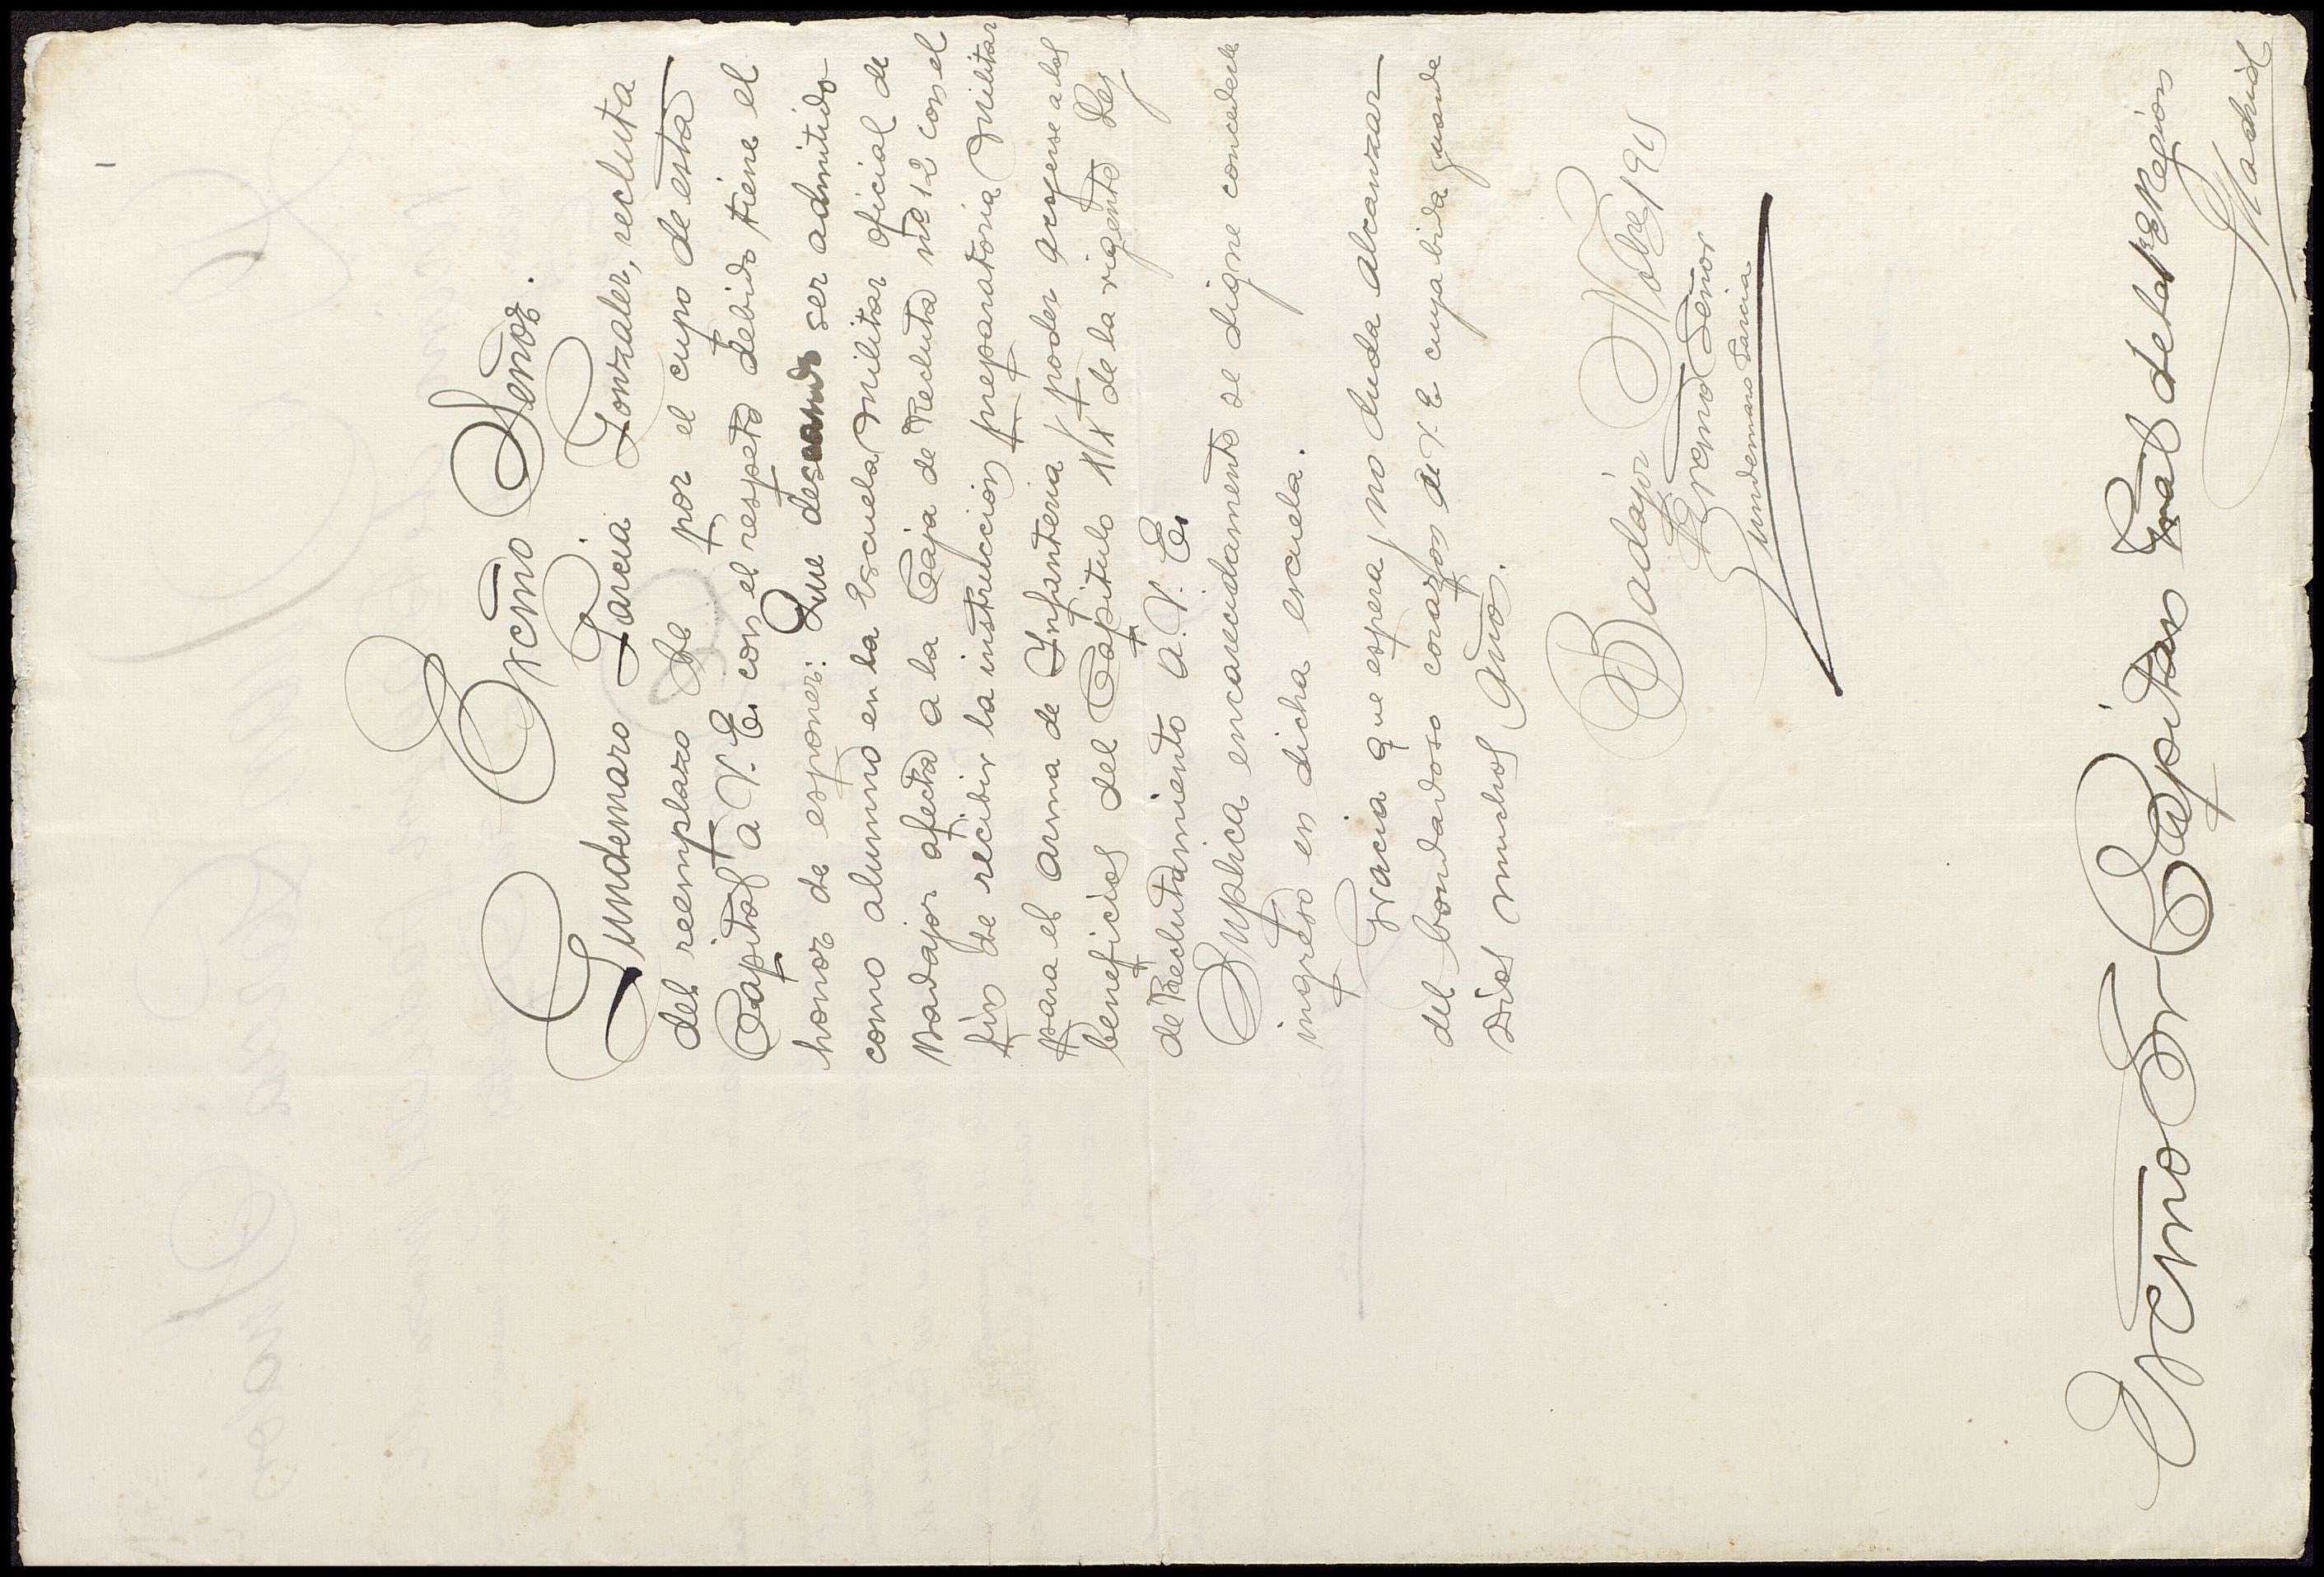 Excmo Señor.
Gundemaro Garcia Gonzalez, recluta
del reemplazo de por el cupo de esta
Capital a V. E. con el respeto debido tiene el
honor de esponer: Que deseando ser admitido
como alumno en la Escuela Militar oficial de
Badajoz afecta a la Caja de Recluta nº 12 con el
fin de recibir la instruccion preparatoria Militar
para el arma de Infanteria y poder acojerse a los
beneficios del Capitulo XX de la vigente Ley
de Reclutamiento a. V. E.
Suplica encarecidamente se digne concederle
ingreso en dicha escuela.
Gracia que espera no duda alcanzar
del bondadoso corazon de V. E cuya bida guarde
Dios muchos años.
Badajoz Nobre
Excmo Señor
Gundemaro Garcia
Excmo Sr Capitan Gral de la 1ª Region
Madrid